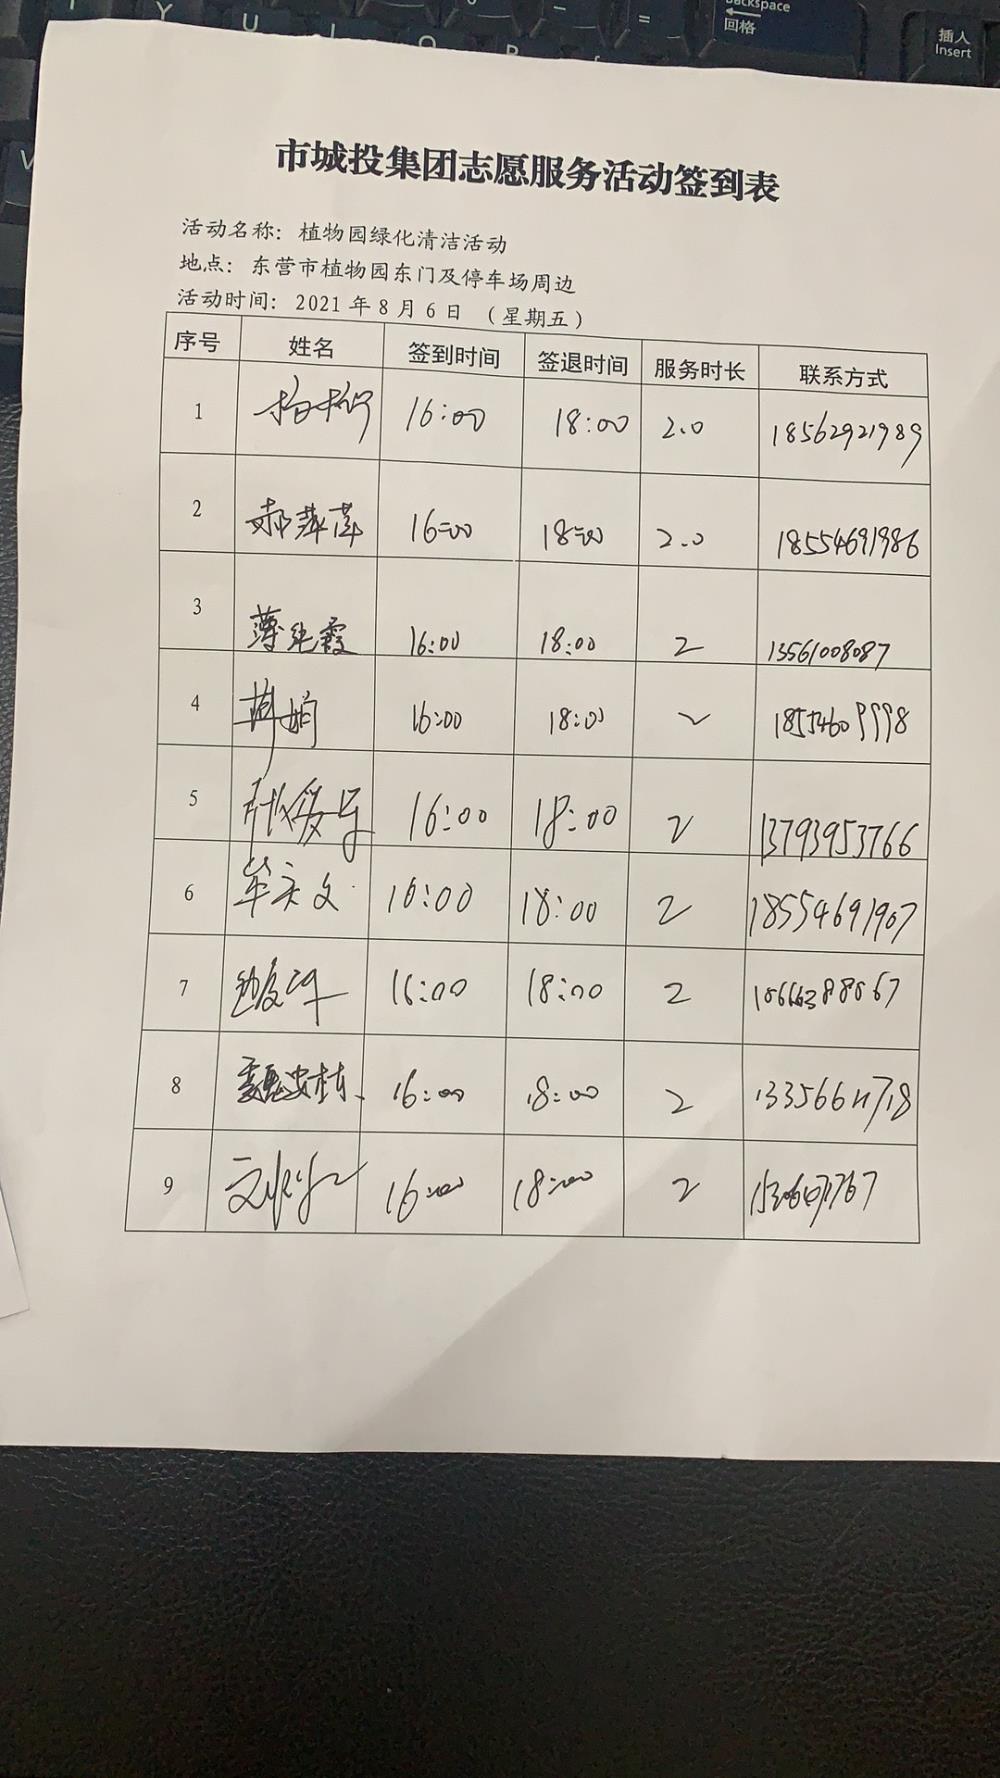 Backspace
回格
插入
Insert
Y
U
市城投集团志愿服务活动签到表
活动名称：植物园绿化清洁活动
地点：东营市植物园东门及停车场周边
活动时间：2021年8月6日（星期五）
序号 姓名 签到时间 签退时间 服务时长 联系方式
1 16:00 18:00 2.0 18562921989
2 郝萍萍 16:00 18:00 2.0 18554691986
3 薄纯霞 16:00 18:00 2 13561008087
4 16:00 18:00 2 18554609998
5 16:00 18:00 2 13793953766
6 16:00 18:00 2 18554691907
7 16:00 18:00 2
8 16:00 18:00 2
9 16:00 18:00 2